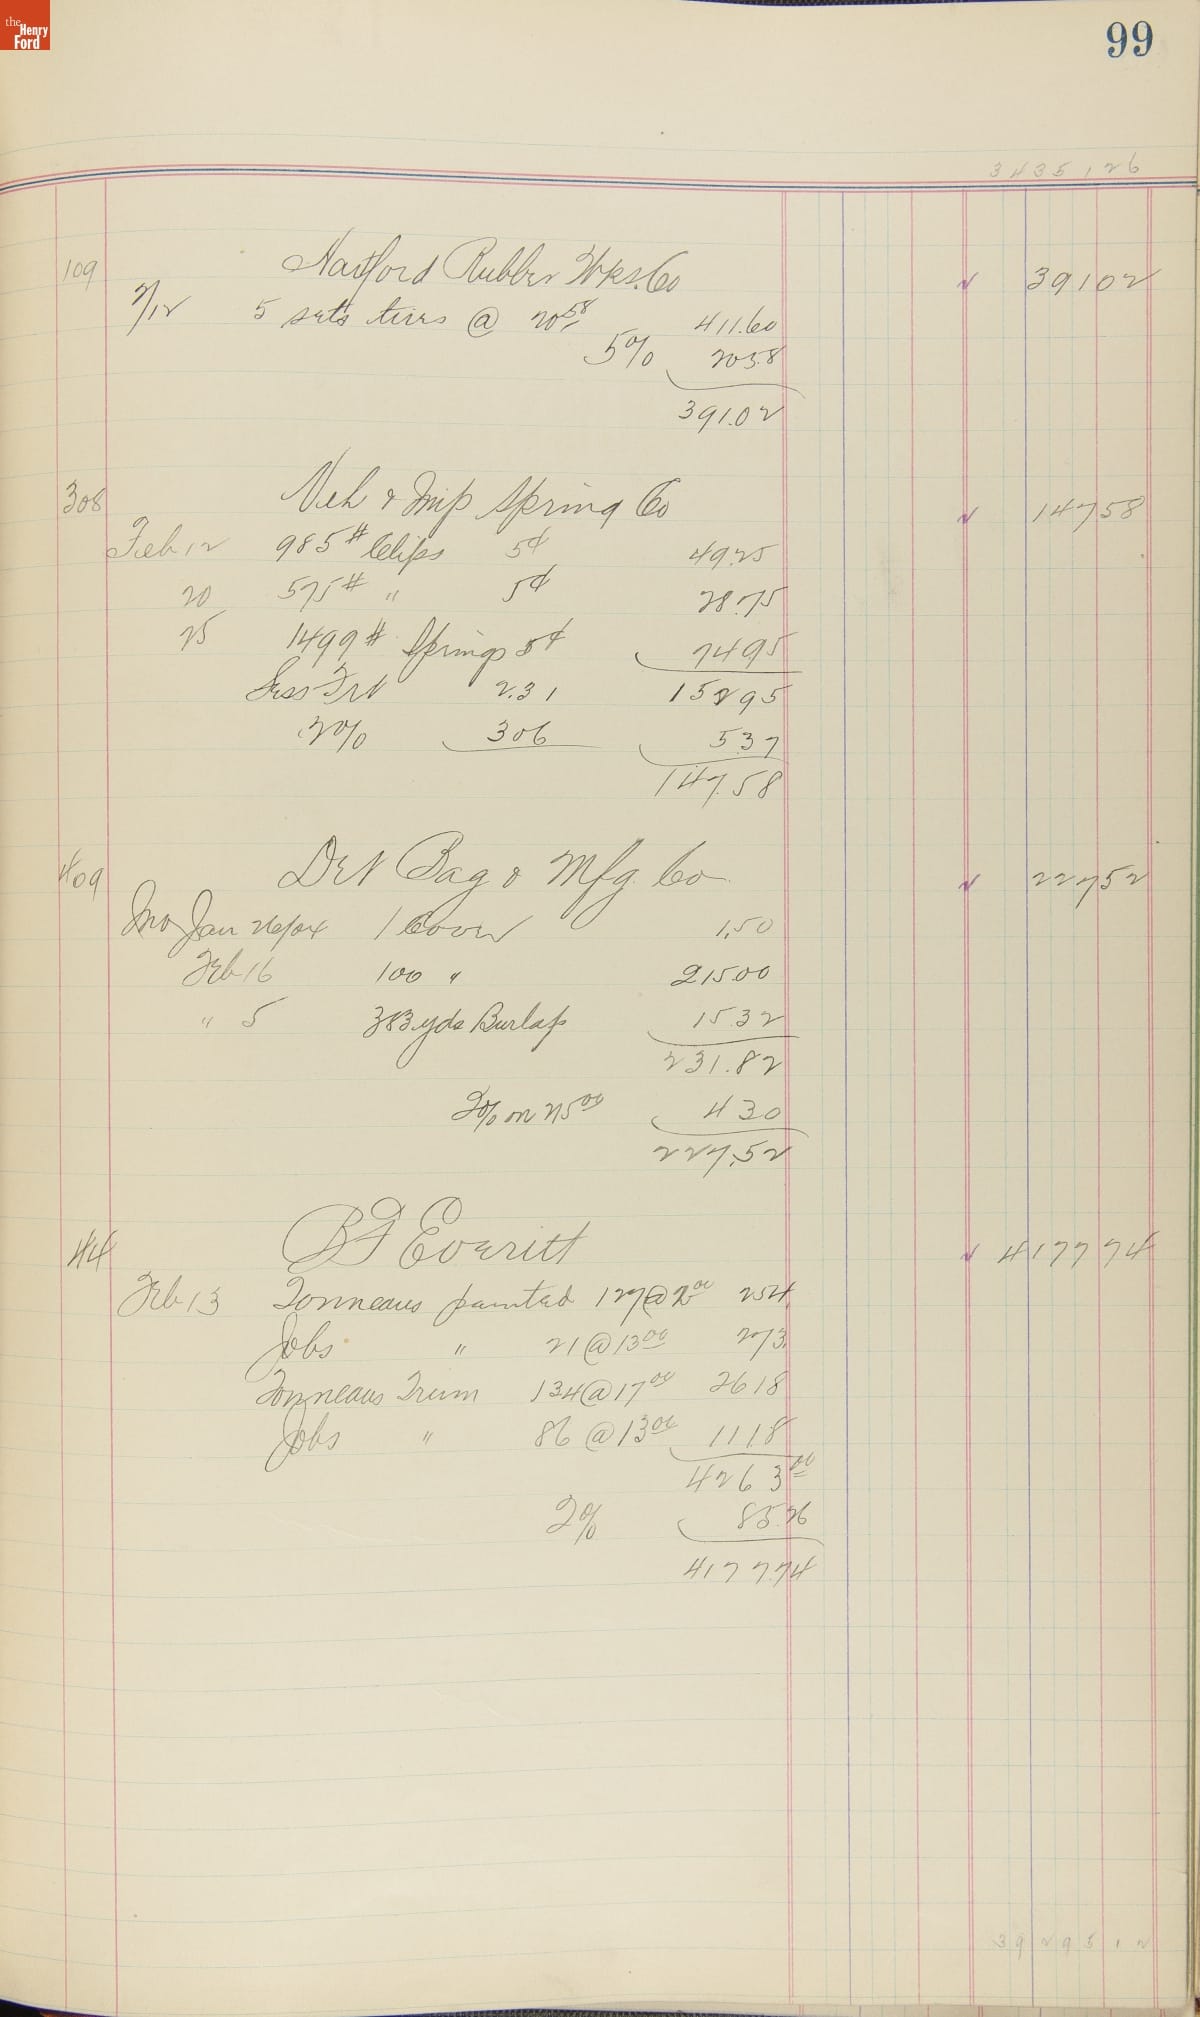 the Henry Ford
99
3435126
109 Hartford Rubber Wks. Co 39102
2/12 5 sets tires @ 20 58 411.60
5% 20.58
391.02
308 Veh & Imp Spring Co 14758
Feb 12 985# Clips 5¢ 49.25
20 575# " 5¢ 28.75
25 1499# Springs 5¢ 7495
Less Frt 2.31 15295
2% 306 5.37
147.58
409 Det Bag & Mfg. Co 22752
Jan 26/04 1 Cover 1.50
Feb 16 100 " 21500
" 5 383 yds Burlap 15.32
231.82
2% on 215 00 4 30
227.52
44 BF Everitt 417774
Feb 13 Tonneaus painted 127 @ 2 00 254
Jobs " 21 @ 13 00 273
Tonneaus Trim 154 @ 17 00 2618
Jobs " 86 @ 13 00 1118
4263 00
2% 85.26
4177.74
3929512